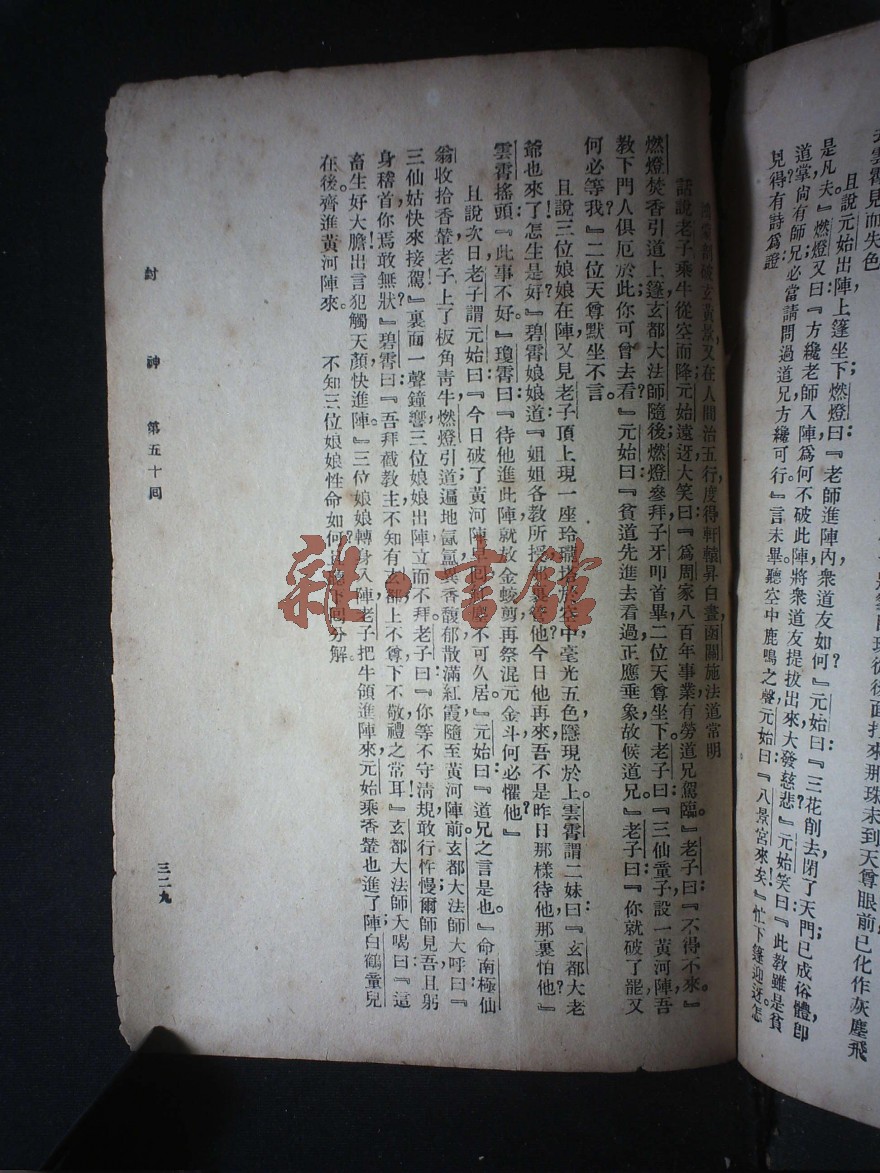 去雲霄見而失色
且說元始出陣上篷坐下燃燈曰：『老師進陣內衆道友如何？』元始曰：『三花削去閉了天門已成俗體即
是凡夫。』燃燈又曰：『方纔老師入陣爲何不破此陣將衆道友提拔出來大發慈悲？』元始笑曰：『此教雖是貧
道掌尙有師兄必當請問過道兄方纔可行。』言未畢聽空中鹿鳴之聲元始曰：『八景宮來矣。』忙下篷迎迓怎
見得有詩爲證
鴻蒙剖破玄黃景，又在人間治五行，度得軒轅昇白晝，函關施法道常明
話說老子乘牛從空而降元始遠迓大笑曰：『爲周家八百年事業有勞道兄駕臨。』老子曰：『不得不來。』
燃燈焚香引道上篷，玄都大法師隨後燃燈參拜子牙叩首畢二位天尊坐下。老子曰：『三仙童子設一黃河陣吾
教下門人俱厄於此你可曾去看？』元始曰：『貧道先進去看過正應垂象故候道兄。』老子曰：『你就破了罷又
何必等我？』二位天尊默坐不言。
且說三位娘娘在陣又見老子頂上現一座玲瓏塔於空中毫光五色隱現於上。雲霄謂二妹曰：『玄都大老
爺也來了怎生是好！』碧霄娘娘道：『姐姐各教所授那裏管他今日他再來吾不是昨日那樣待他那裏怕他？』
雲霄搖頭：『此事不好。』瓊霄曰：『待他進此陣就放金蛟剪再祭混元金斗何必懼他？』
且說次日老子謂元始曰：『今日破了黃河陣早回紅塵不可久居。』元始曰：『道兄之言是也。』命南極仙
翁收拾香輦老子上了板角靑牛燃燈引道遍地氤氳異香馥郁散滿紅霞隨至黃河陣前玄都大法師大呼曰：『
三仙姑快來接駕！』裏面一聲鐘響三位娘娘出陣立而不拜老子曰：『你等不守清規敢行忤慢爾師見吾且躬
身稽首你焉敢無狀？』碧霄曰：『吾拜截教主不知有玄都上不尊下不敬禮之常耳。』玄都大法師大喝曰：『這
畜生好大膽出言犯觸天顏快進陣！』三位娘娘轉身入陣老子把牛領進陣來元始乘香輦也進了陣白鶴童兒
在後。齊進黃河陣來。　不知三位娘娘性命如何？下回分解。
封　神　第五十回
三二九
雜·書館